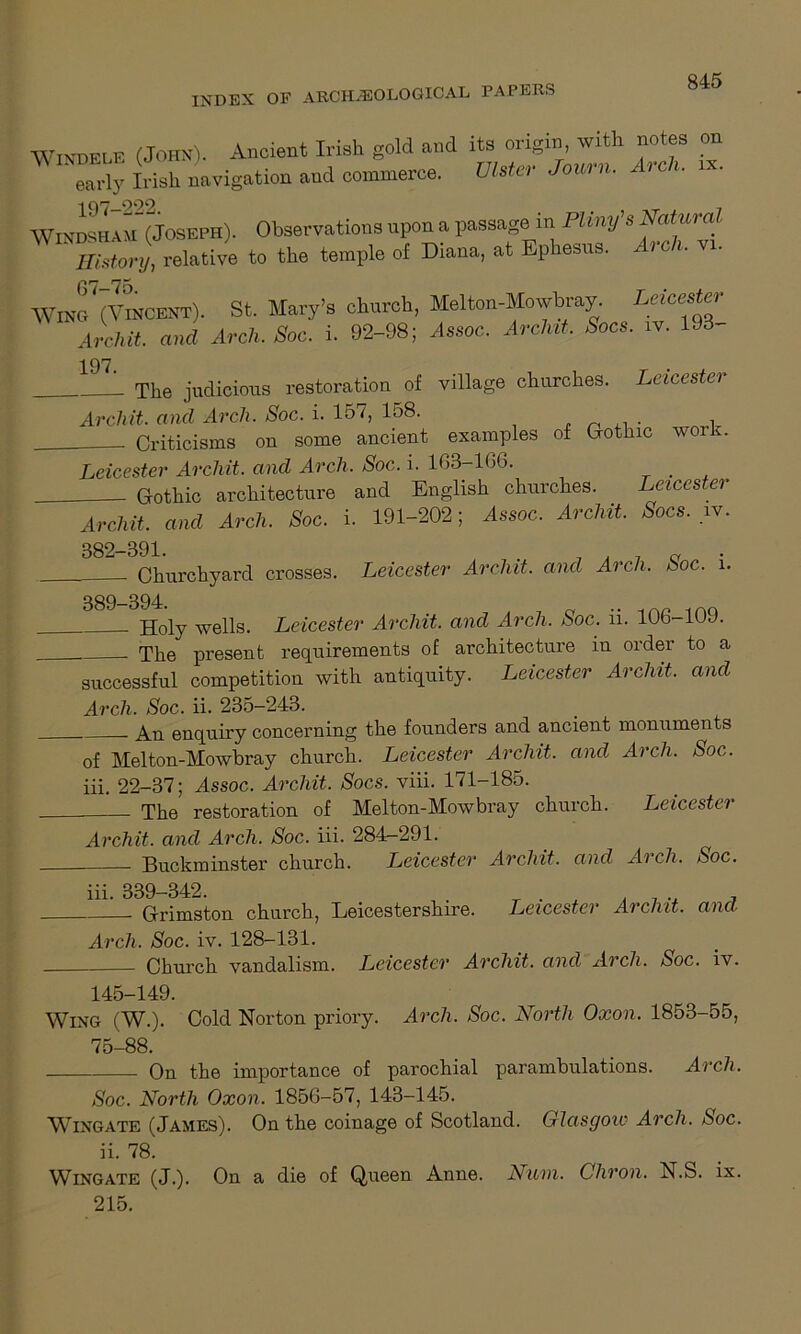 INDEX OF ARCHÆOLOGICAL PAPERS
845
WINDELE (JOHN). Ancient Irish gold and its origin, with notes on
early Irish navigation and commerce. Ulster Journ. Arch. ix.
197-222.
WINDSHAM (JOSEPH). Observations upon a passage in Pliny's Natural
History, relative to the temple of Diana, at Ephesus. Arch. vi.
67-75.
WING (VINCENT). St. Mary's church, Melton-Mowbray. Leicester
Archit. and Arch. Soc. i. 92-98; Assoc. Archit. Socs. iv. 193-
197.
——— The judicious restoration of village churches. Leicester
Archit. and Arch. Soc. i. 157, 158.
——— Criticisms on some ancient examples of Gothic work.
Leicester Archit. and Arch. Soc. i. 163-166.
——— Gothic architecture and English churches. Leicester
Archit. and Arch. Soc. i. 191-202; Assoc. Archit. Socs. iv.
382-391.
——— Churchyard crosses. Leicester Archit. and Arch. Soc. i.
389-394.
——— Holy wells. Leicester Archit. and Arch. Soc. ii. 106-109.
——— The present requirements of architecture in order to a
successful competition with antiquity. Leicester Archit. and
Arch. Soc. ii. 235-243.
——— An enquiry concerning the founders and ancient monuments
of Melton-Mowbray church. Leicester Archit. and Arch. Soc.
iii. 22-37; Assoc. Archit. Socs. viii. 171-185.
——— The restoration of Melton-Mowbray church. Leicester
Archit. and Arch. Soc. iii. 284-291.
——— Buckminster church. Leicester Archit. and Arch. Soc.
iii. 339-342.
——— Grimston church, Leicestershire. Leicester Archit. and
Arch. Soc. iv. 128-131.
——— Church vandalism. Leicester Archit. and Arch. Soc. iv.
145-149.
WING (W.). Cold Norton priory. Arch. Soc. North Oxon. 1853-55,
75-88.
——— On the importance of parochial parambulations. Arch.
Soc. North Oxon. 1856-57, 143-145.
WINGATE (JAMES). On the coinage of Scotland. Glasgow Arch. Soc.
ii. 78.
WINGATE (J.). On a die of Queen Anne. Num. Chron. N.S. ix.
215.